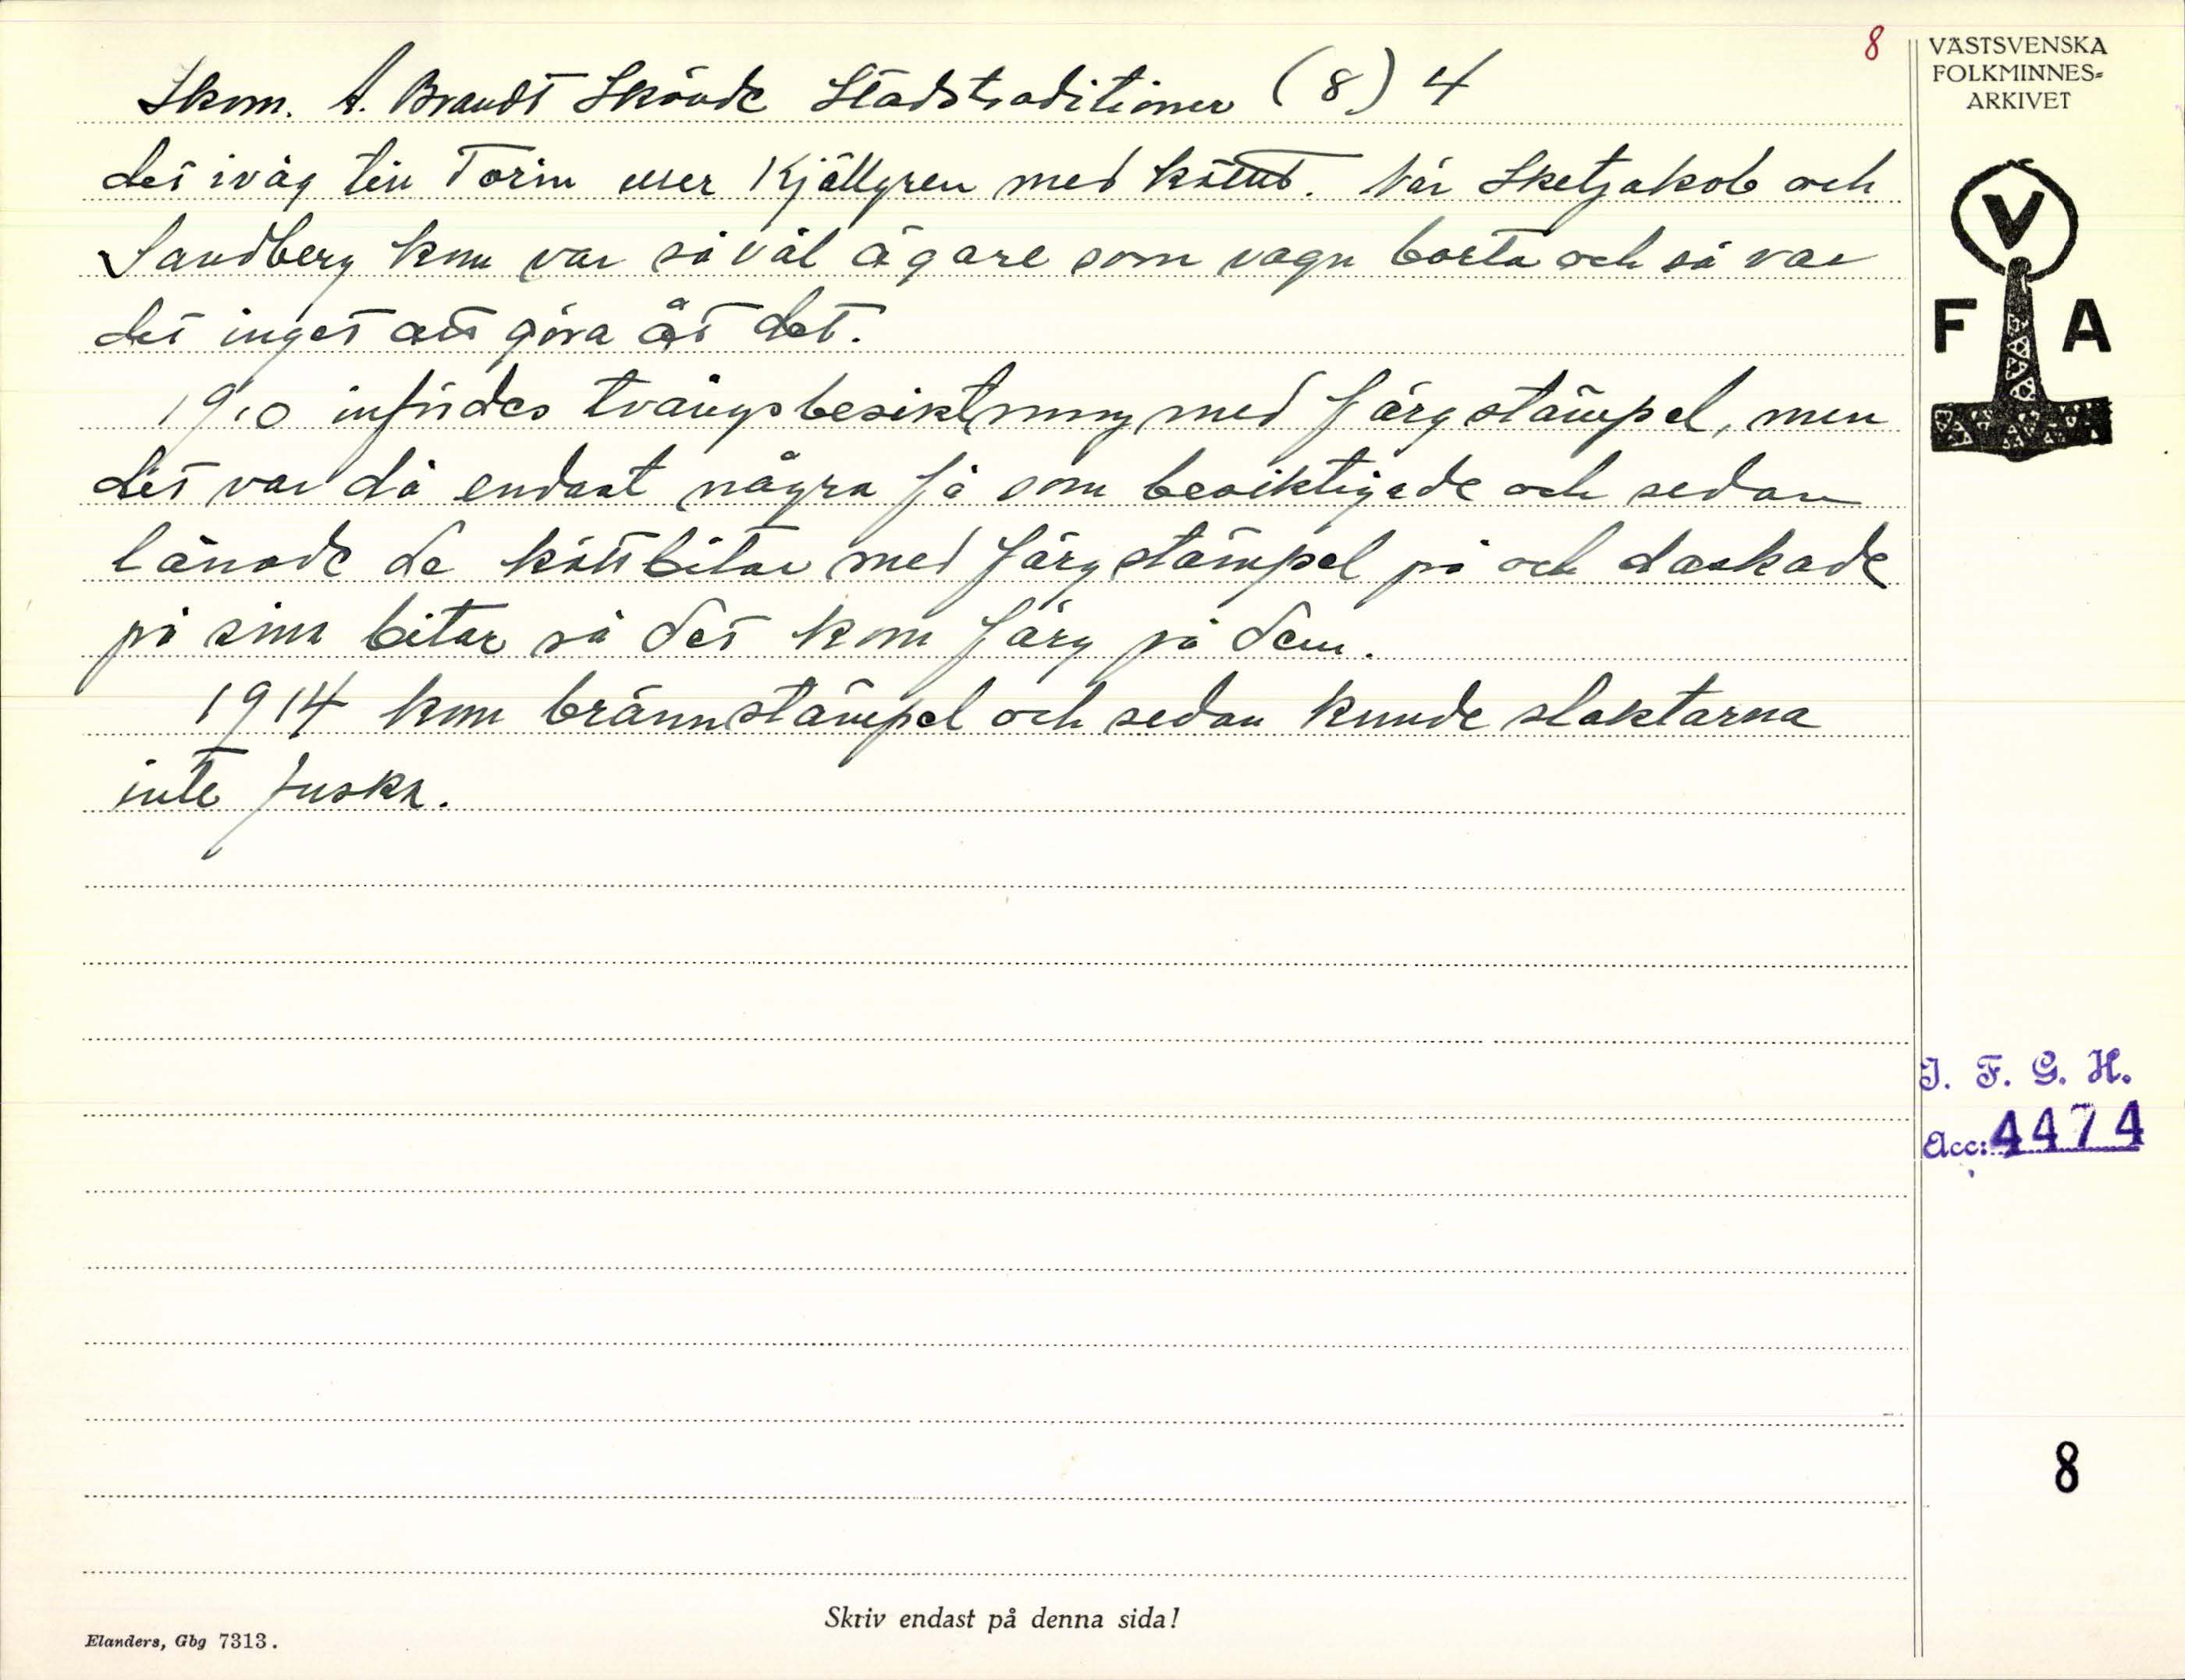 8
Skom. A. Brandt Skövde Stadstraditioner (8) 4
det iväg till Torin eller Kjällgren med köttet. När Sketjakob och
Sandberg kom var såväl ägare som vagn borta och så var
det inget att göra åt det.
1910 infördes tvångsbesiktning med färgstämpel, men
det var då endast några få som besiktigade och sedan
lånade de köttbitar med färgstämpel på och daskade
på sina bitar så det kom färg på dem.
1914 kom brännstämpel och sedan kunde slaktarna
inte fuska.
VÄSTSVENSKA
FOLKMINNES=
ARKIVET
V
F A
I. F. G. H.
Acc: 4474
8
Skriv endast på denna sida!
Elanders, Gbg 7313.